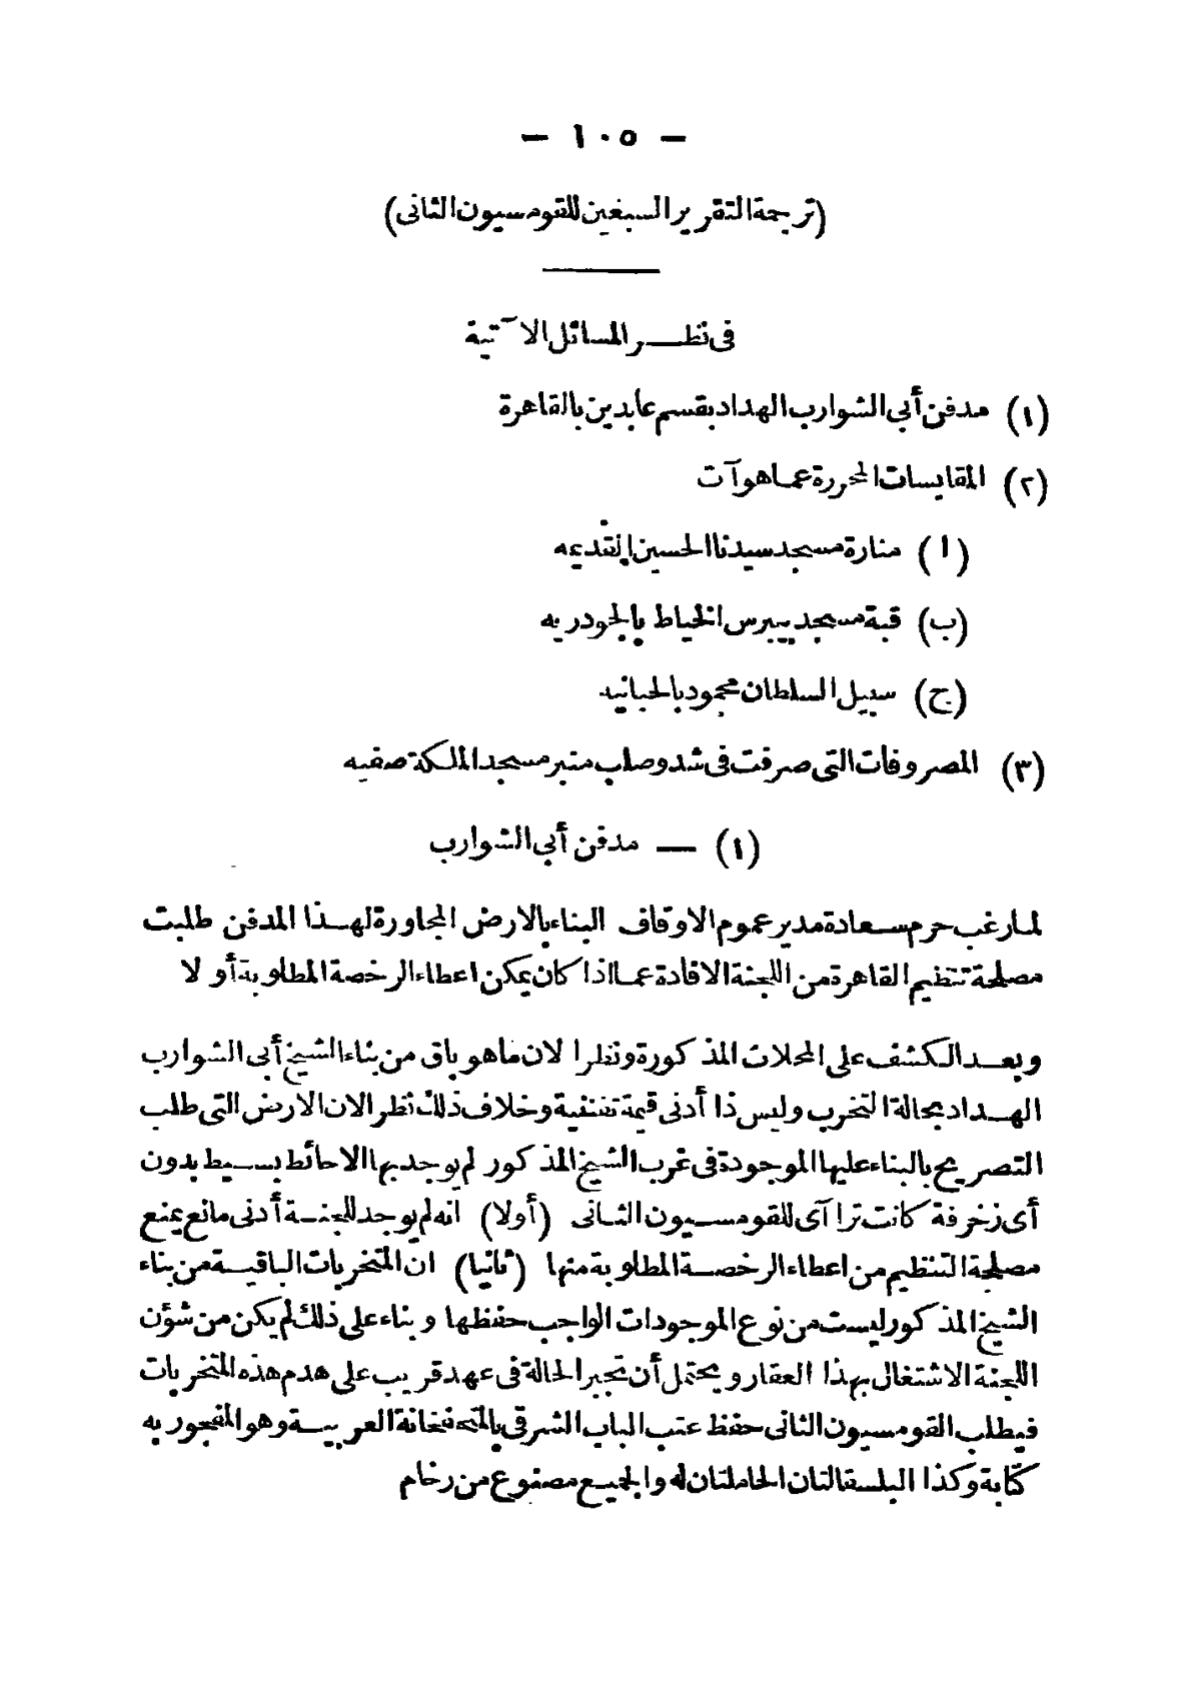 — ١٠٥ —
(ترجمة التقرير السبعين للقومسيون الثانى)
فى نظر المسائل الآتية
(١) مدفن أبى الشوارب الهداد بقسم عابدين بالقاهرة
(٢) المقايسات المحررة عما هو آت
(أ) منارة مسجد سيدنا الحسين القديمه
(ب) قبة مسجد بيبرس الخياط بالجودريه
(ج) سبيل السلطان محمود بالحبانيه
(٣) المصروفات التى صرفت فى شد وصلب منبر مسجد الملكة صفيه
(١) — مدفن أبى الشوارب
لما رغب حرم سعادة مدير عموم الاوقاف البناء بالارض المجاورة لهذا المدفن طلبت
مصلحة تنظيم القاهرة من اللجنة الافادة عما اذا كان يمكن اعطاء الرخصة المطلوبة أو لا
وبعد الكشف على المحلات المذكورة ونظرا لان ما هو باق من بناء الشيخ أبى الشوارب
الهداد بحالة التخرب وليس ذا أدنى قيمة تفننية وخلاف ذلك نظر الان الارض التى طلب
التصريح بالبناء عليها الموجودة فى غرب الشيخ المذكور لم يوجد بها الا حائط بسيط بدون
أى زخرفة كانت ترا آى للقومسيون الثانى (أولا) انه لم يوجد للجنة أدنى مانع يمنع
مصلحة التنظيم من اعطاء الرخصة المطلوبة منها (ثانيا) ان المتخربات الباقية من بناء
الشيخ المذكور ليست من نوع الموجودات الواجب حفظها وبناء على ذلك لم يكن من شؤن
اللجنة الاشتغال بهذا العقار ويحتمل أن تجبر الحالة فى عهد قريب على هدم هذه المتخربات
فيطلب القومسيون الثانى حفظ عتب الباب الشرقى بالمتحفخانة العربية وهو المفجور به
كتابة وكذا البلسقالتان الحاملتان له والجميع مصنوع من رخام